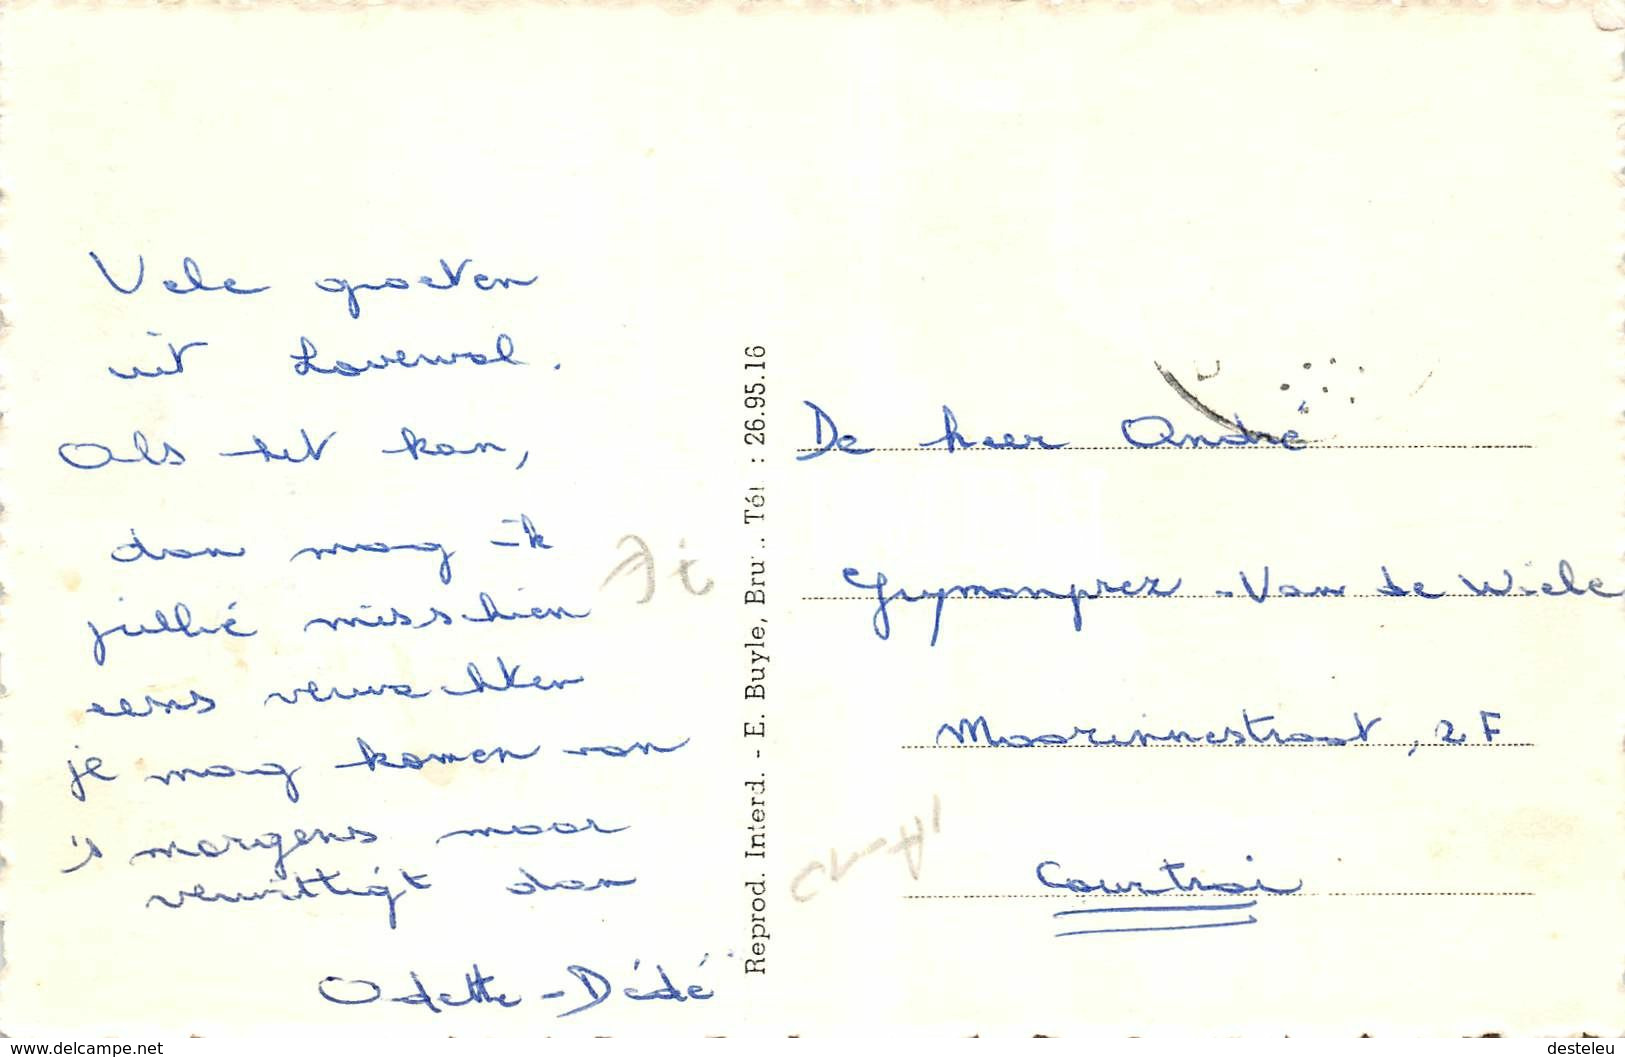 Vele groeten
uit Loverval.
Als het kan,
dan mag ik
jullie misschien
eens verwachten
je mag komen van
's morgens maar
verwittigt dan
Odette - Dédé
Reprod. Interd. - E. Buyle, Brux. Tél. : 26.95.16
De heer André
Guymonprez - Van de Wiele
Moorinnestraat, 2F
Courtrai
www.delcampe.net
desteleu